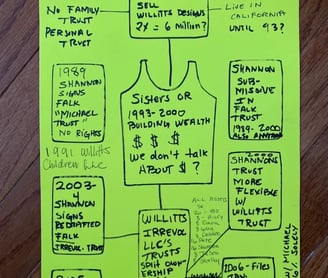 NO FAMILY
TRUST
PERSONAL
TRUST
SELL
WILLITTS DESIGNS
2X = 6 MILLION?
LIVE IN
CALIFORNIA
UNTIL 93?
1989
SHANNON
SIGNS
FALK
"MICHAEL
TRUST"
NO RIGHTS
1991 Willitts
Children
Sisters OR
1993-2000
BUILDING WEALTH
$ $ $
We don't talk
ABOUT $ ?
SHANNON
SUB-
MISSIVE
IN
FALK
TRUST
1989-2000
2003-
4
SHANNON
SIGNS
RESTATED
FALK
IRREVOC. TRUST
WILLITTS
IRREVOC
LLC's
TRUSTS
SPLIT OWN-
ERSHIP
ALL
SHANNONS
TRUST
MORE
FLEXIBLE
W/
WILLITTS
TRUST
2006 - FILES
W/ MICHAEL
SOLELY